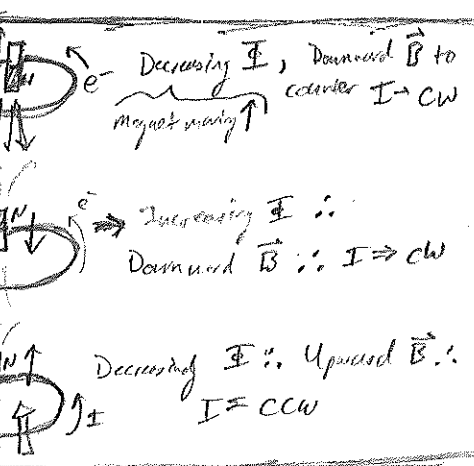 N e⁻ Decreasing Φ, Downward B⃗ to
counter I → CW
Magnet moving ↑
N ↓ e⁻ ⇒ Increasing Φ ∴
Downward B⃗ ∴ I ⇒ CW
N ↑ Decreasing Φ ∴ Upward B⃗ ∴
↑ I I = CCW